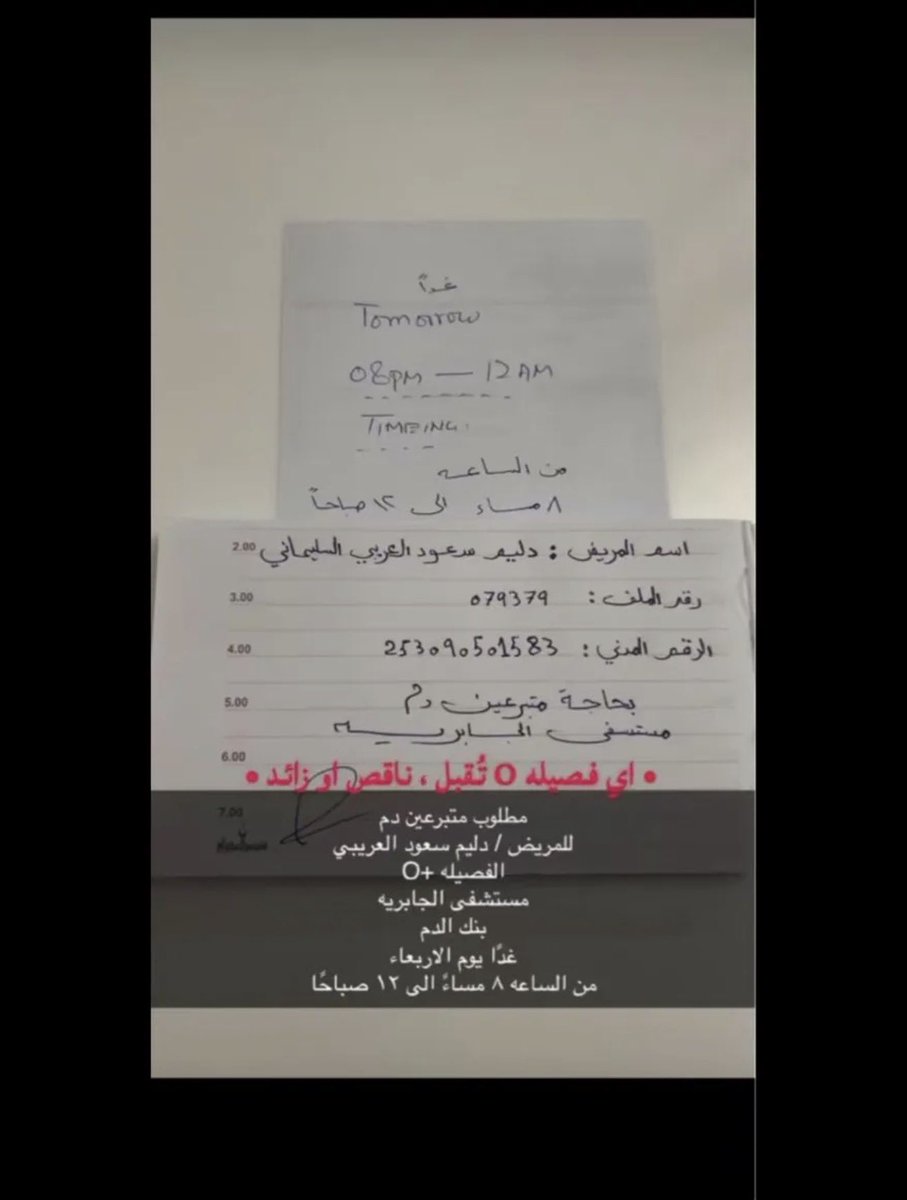 غداً
Tomorrow
08PM — 12AM
TIMEING:
من الساعه
٨ مساء الى ١٢ صباحاً
2.00 اسم المريض : دليم سعود العريبي السليماني
3.00 رقم الملف : 079379
4.00 الرقم المدني : 253090501583
5.00 بحاجة متبرعين دم
مستشفى الجابريه
6.00
• اي فصيله O تُقبل ، ناقص او زائد •
7.00
مطلوب متبرعين دم
للمريض / دليم سعود العريبي
الفصيله +O
مستشفى الجابريه
بنك الدم
غدًا يوم الاربعاء
من الساعه ٨ مساءً الى ١٢ صباحًا